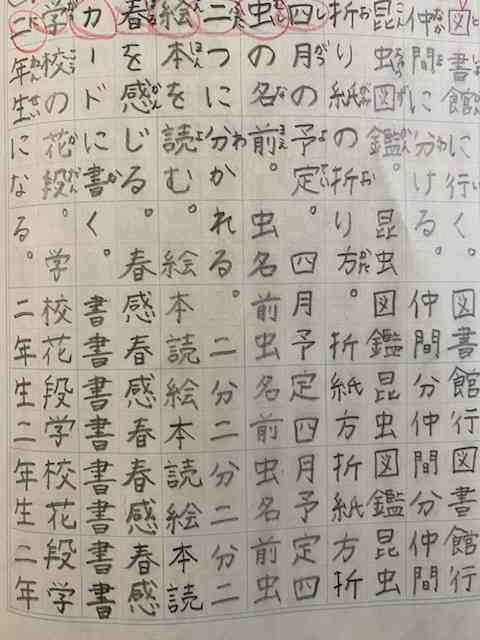 図書館に行く。図書館行図書館行
仲間に分ける。仲間分仲間分仲間
昆虫図鑑。昆虫図鑑昆虫図鑑昆虫
折り紙の折り方。折紙方折紙方折
四月の予定。四月予定四月予定四
虫の名前。虫名前虫名前虫名前虫
二つに分かれる。二分二分二分二
絵本を読む。絵本読絵本読絵本読
春を感じる。春感春感春春感春感
カードに書く。書書書書書書書書
学校の花段。学校花段学校花段学
二年生になる。二年生二年生二年